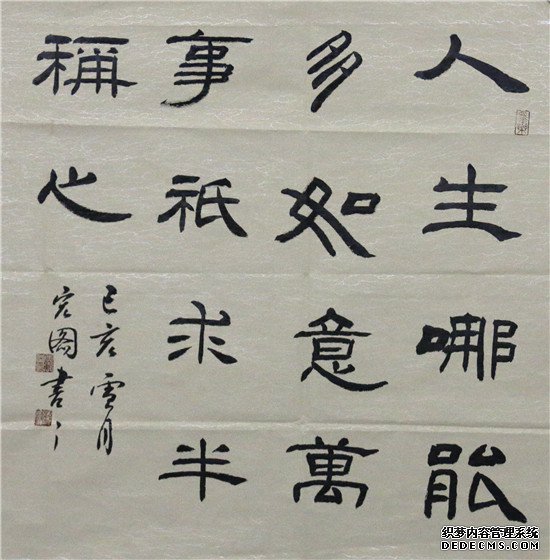 人生哪能
多如意萬
事祇求半
稱心
己亥雪月
宏图書
织梦内容管理系统
DEDECMS.COM